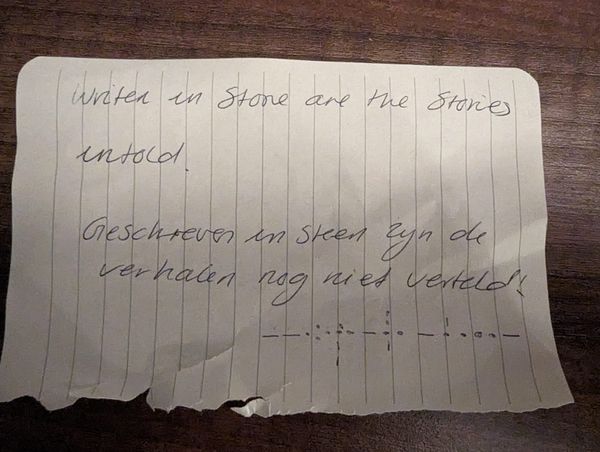 Writen in Stone are the Stories
untold.
Geschreven in Steen zyn de
verhalen nog niet verteld!